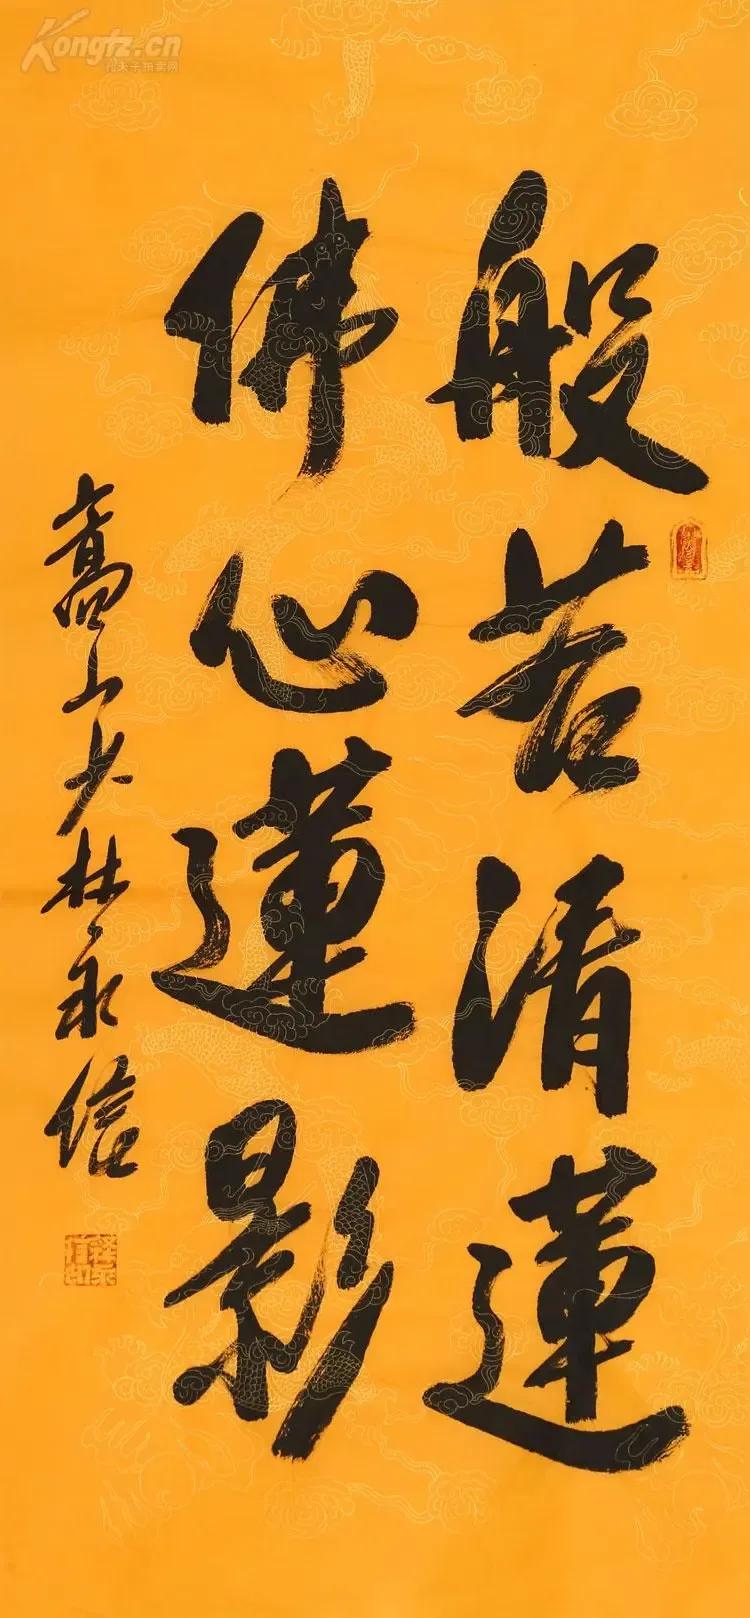 般若清蓮
佛心蓮影
嵩山少林永信
Kongfz.cn
孔夫子拍卖网